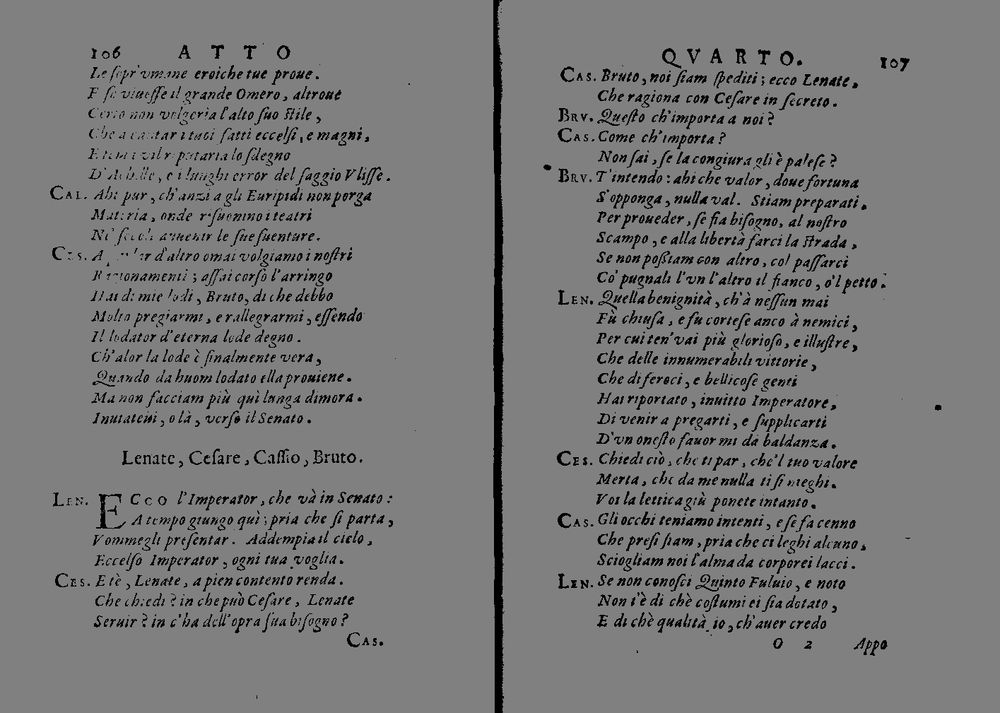 106 ATTO
Le sopr'vmane eroiche tue proue.
E se viuesse il grande Omero, altroue
Certo non volgeria l'alto suo stile,
Che a cantar i tuoi fatti eccelsi, e magni,
E lo sdegno
D'Achille, e i lunghi error del saggio Vlisse.
CAL. Ahi pur, ch'anzi a gli Euripidi non porga
Materia, onde risuonino i teatri
Ne' secoli auenir le sue suenture.
CES. A d'altro omai volgiamo i nostri
Ragionamenti; assai corso l'arringo
Hai di mie lodi, Bruto, di che debbo
Molto pregiarmi, e rallegrarmi, essendo
Il lodator d'eterna lode degno.
Ch'alor la lode è finalmente vera,
Quando da huom lodato ella prouiene.
Ma non facciam più quì lunga dimora.
Inuiateui, o là, verso il Senato.
Lenate, Cesare, Cassio, Bruto.
LEN. ECCO l'Imperator, che và in Senato:
A tempo giungo quì; pria che si parta,
Vommegli presentar. Addempia il cielo,
Eccelso Imperator, ogni tua voglia.
CES. E tè, Lenate, a pien contento renda.
Che chiedi? in che può Cesare, Lenate
Seruir? in c'ha dell'opra sua bisogno?
CAS.
QVARTO. 107
CAS. Bruto, noi siam spediti; ecco Lenate,
Che ragiona con Cesare in secreto.
BRV. Questo ch'importa a noi?
CAS. Come ch'importa?
Non sai, se la congiura gli è palese?
BRV. T'intendo: ahi che valor, doue fortuna
S'opponga, nulla val. Stiam preparati,
Per proueder, se fia bisogno, al nostro
Scampo, e alla libertà farci la strada,
Se non possiam con altro, col passarci
Co' pugnali l'vn l'altro il fianco, o'l petto.
LEN. Quella benignità, ch'à nessun mai
Fù chiusa, e fu cortese anco à nemici,
Per cui ten'vai più glorioso, e illustre,
Che delle innumerabili vittorie,
Che di feroci, e bellicose genti
Hai riportato, inuitto Imperatore,
Di venir a pregarti, e supplicarti
D'vn onesto fauor mi da baldanza.
CES. Chiedi ciò, che ti par, che'l tuo valore
Merta, che da me nulla ti si neghi.
Voi la lettica giù ponete intanto.
CAS. Gli occhi teniamo intenti, e se fa cenno
Che presi siam, pria che ci leghi alcuno,
Sciogliam noi l'alma da corporei lacci.
LEN. Se non conosci Quinto Fuluio, e noto
Non t'è di chè costumi ei sia dotato,
E di chè qualità io, ch'auer credo
O 2 Appo